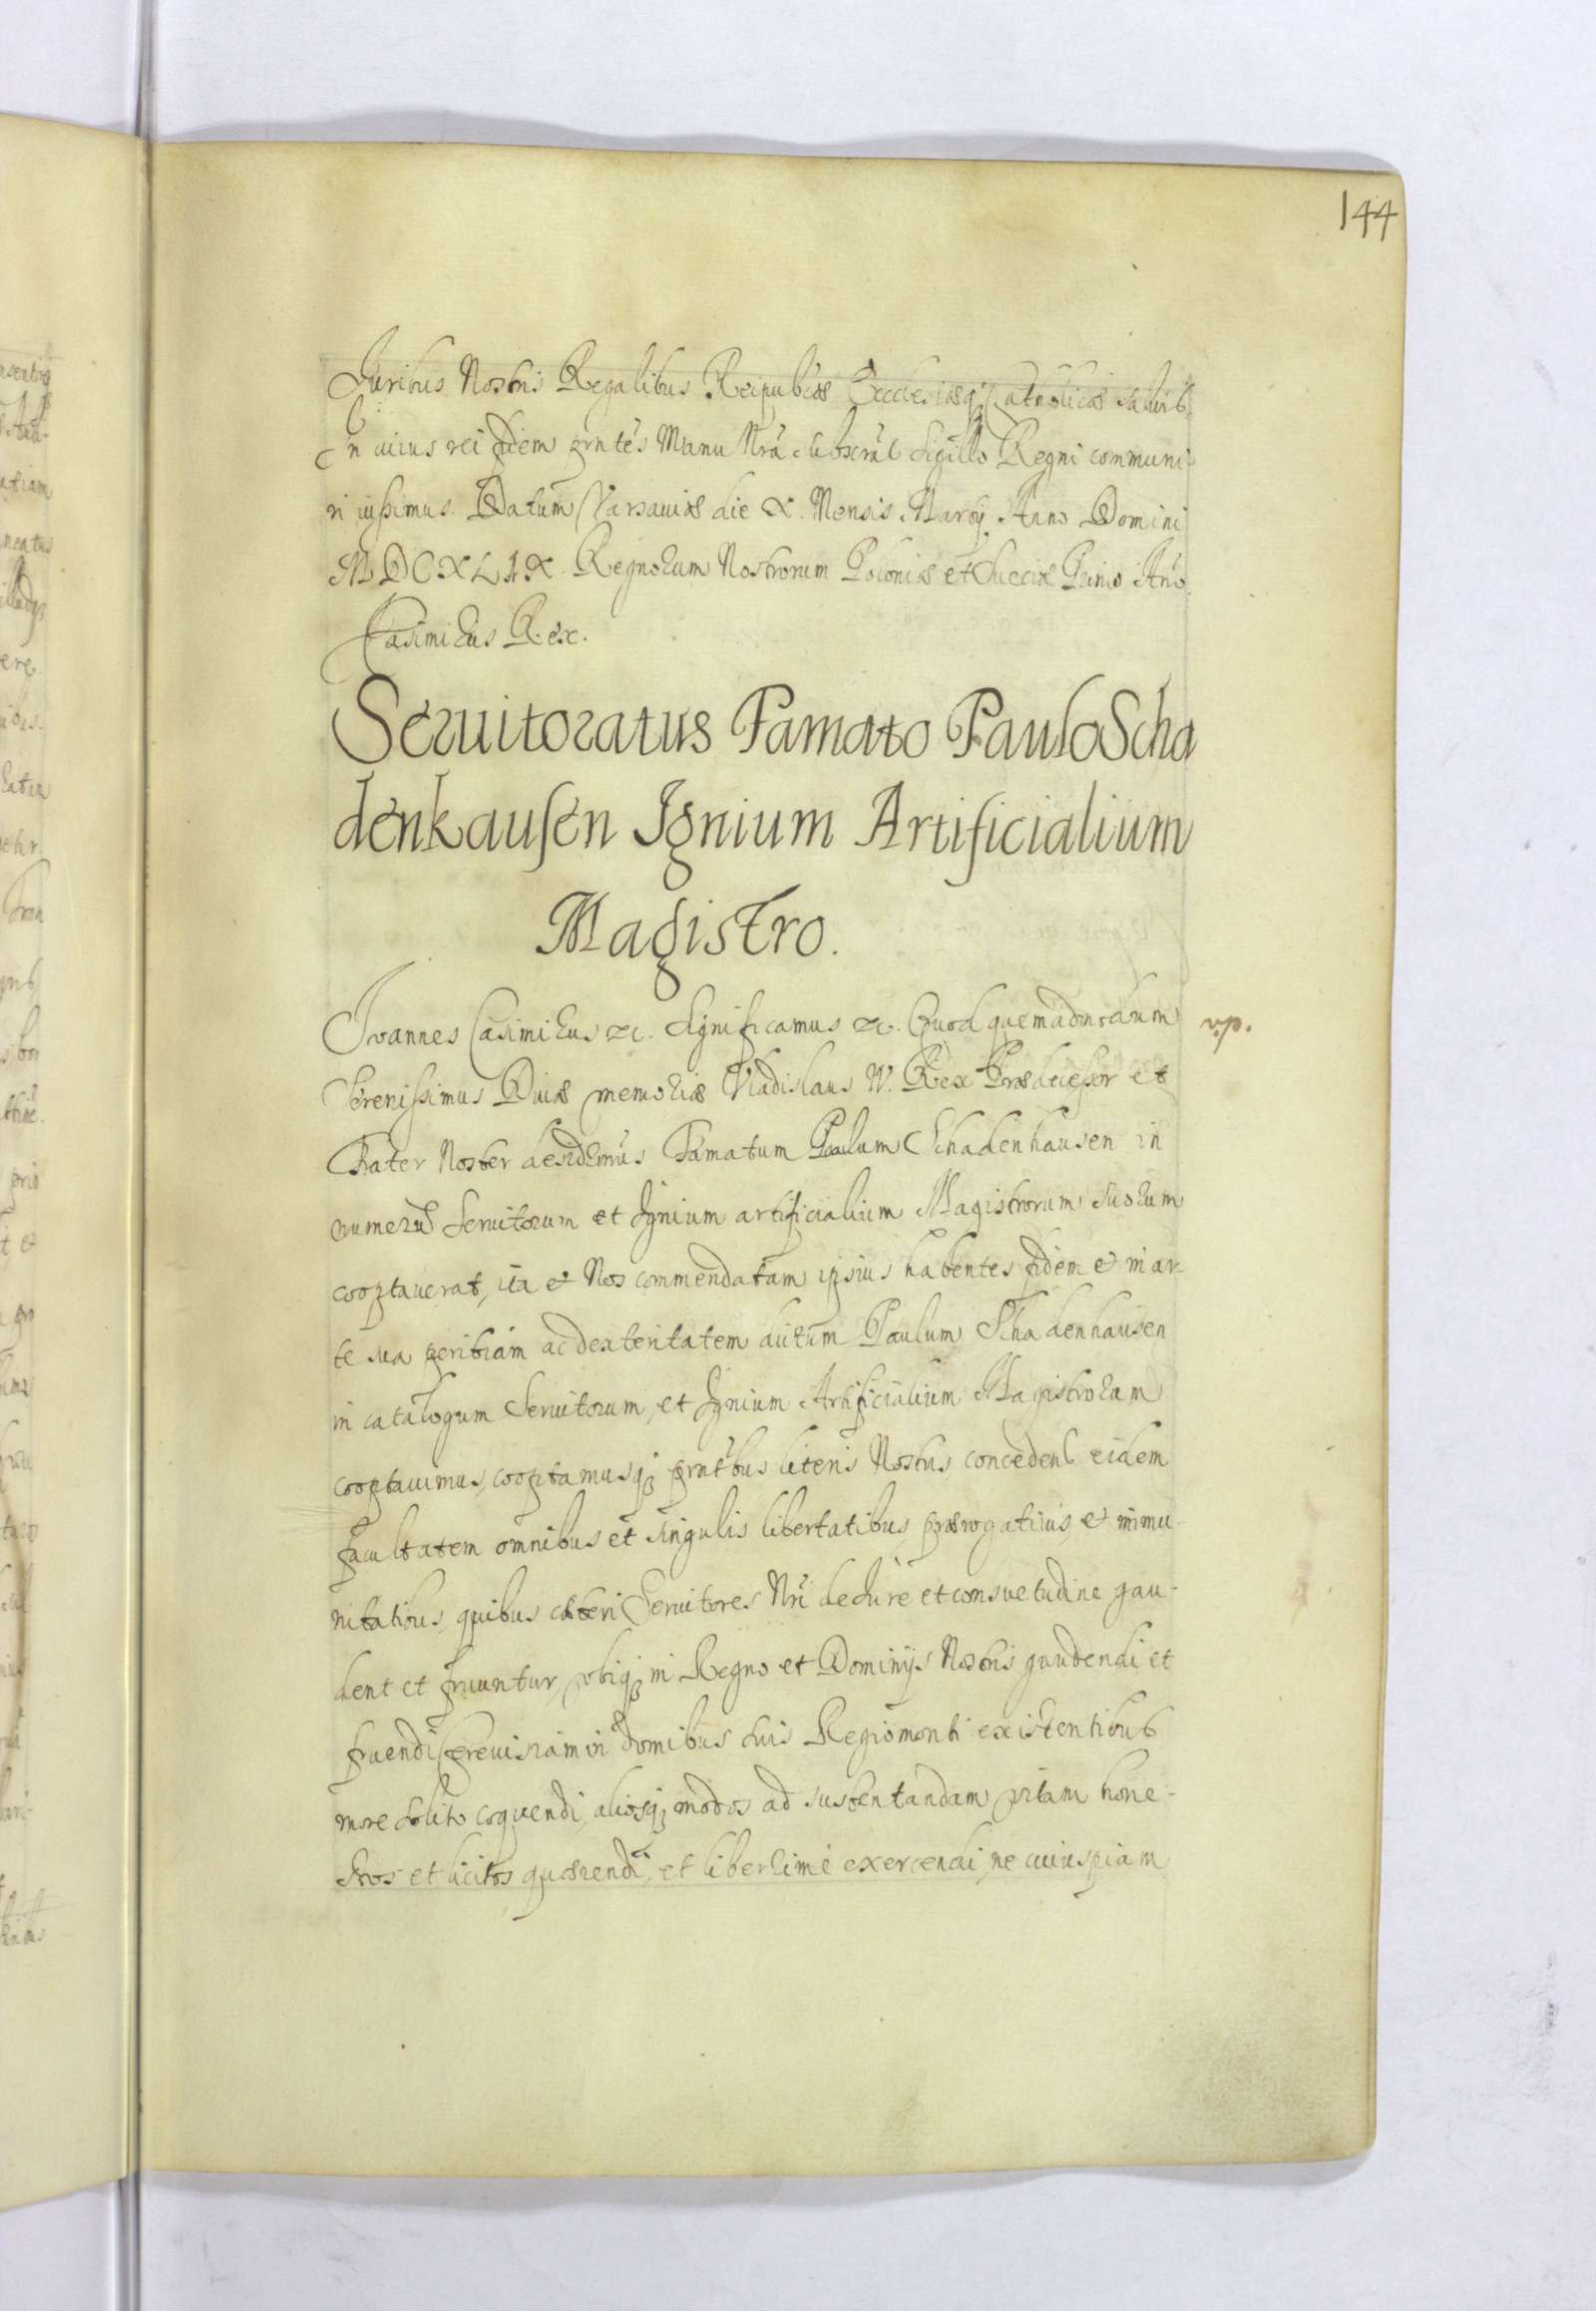 144
Juribus Nostris Regalibus Reipubcæ Ecclesiæq; Catholicæ saluis.
In cuius rei fidem prntes Manu Nra subscrat Sigillo Regni communi-
ri iussimus. Datum Varsauiæ die X. Mensis Martij Anno Domini
MDCXLIX. Regnorum Nostrorum Poloniæ et Sueciæ Primo Ano
Casimirus Rex.
Seruitoratus Famato Paulo Scha
denhausen Ignium Artificialium
Magistro.
Joannes Casimirus &c. Significamus &c. Quod quemadmodum
vp.
Serenissimus Diuæ memoriæ Vladislaus IV. Rex Prædecessor et
Frater Noster desidemus Famatum Paulum Schadenhausen in
numeru Seruitorum et Ignium artificialium Magistrorum suorum
cooptauerat, ita et Nos commendatam ipsius habentes fidem et in ar-
te sua peritiam ac dexteritatem dictum Paulum Schadenhausen
in catalogum Seruitorum, et Ignium Artificialium Magistrorum
cooptauimus, cooptamusq; prntibus literis Nostris, concedent eidem
facultatem omnibus et singulis libertatibus, prærogatiuis, et immu-
nitatibus, quibus cæteri Seruitores Nri de Jure et consuetudine gau-
dent et fruuntur, vbiq; in Regno et Dominijs Nostris gaudendi et
fruendi Cereuisiam in domibus suis Regiomonti existentibus
more solito coquendi, aliosq; modos ad sustentandam vitam hone-
stos et licitos quærendi, et liberrime exercendi, ne cuiuspiam